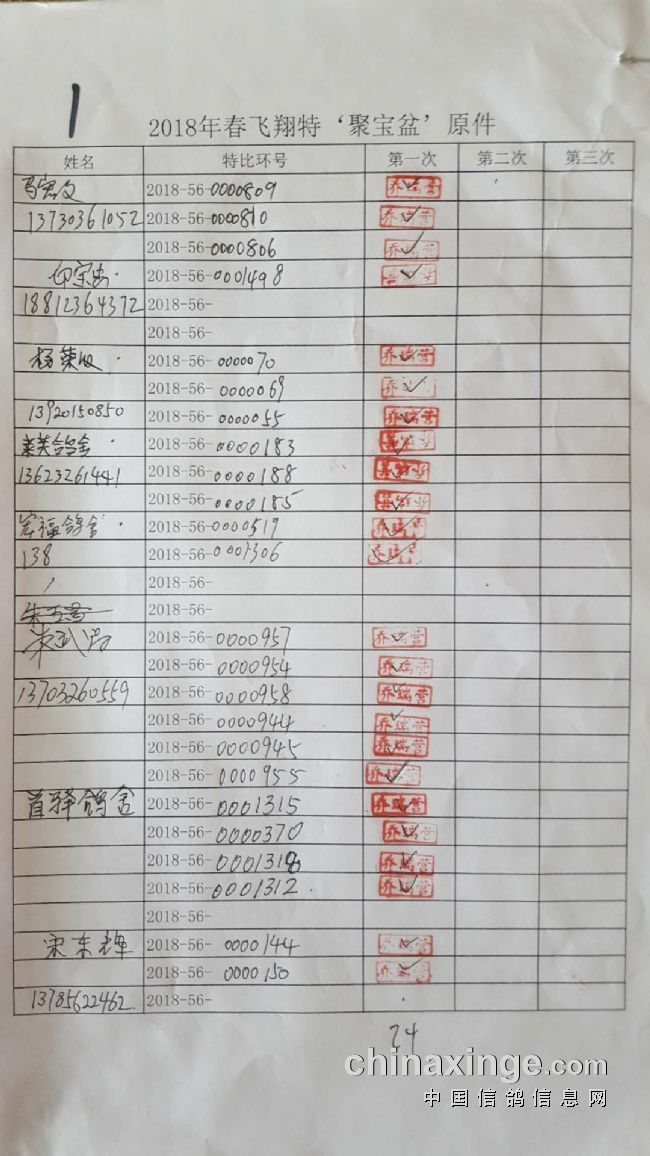 1
2018年春飞翔特‘聚宝盆’原件
姓名 特比环号 第一次 第二次 第三次
2018-56-0000809 乔瑞营
13730361052 2018-56-0000810 乔瑞营
2018-56-0000806 乔瑞营
2018-56-0001498
18812364372 2018-56-
2018-56-
2018-56-0000070 乔瑞营
2018-56-0000069
13920150850 2018-56-0000055 乔瑞营
2018-56-0000183
13623261441 2018-56-0000188
2018-56-0000185
宏福鸽舍 2018-56-0000519
138 2018-56-0001306
2018-56-
2018-56-
2018-56-0000957 乔瑞营
2018-56-0000954 乔瑞营
13703260559 2018-56-0000958 乔瑞营
2018-56-0000944 乔瑞营
2018-56-0000945 乔瑞营
2018-56-0000955 乔瑞营
首驿鸽舍 2018-56-0001315 乔瑞营
2018-56-0000370 乔瑞营
2018-56-0001318 乔瑞营
2018-56-0001312 乔瑞营
2018-56-
宋东辉 2018-56-0000144 乔瑞营
2018-56-0000150 乔瑞营
13785622462 2018-56-
24
chinaxinge.com
中国信鸽信息网